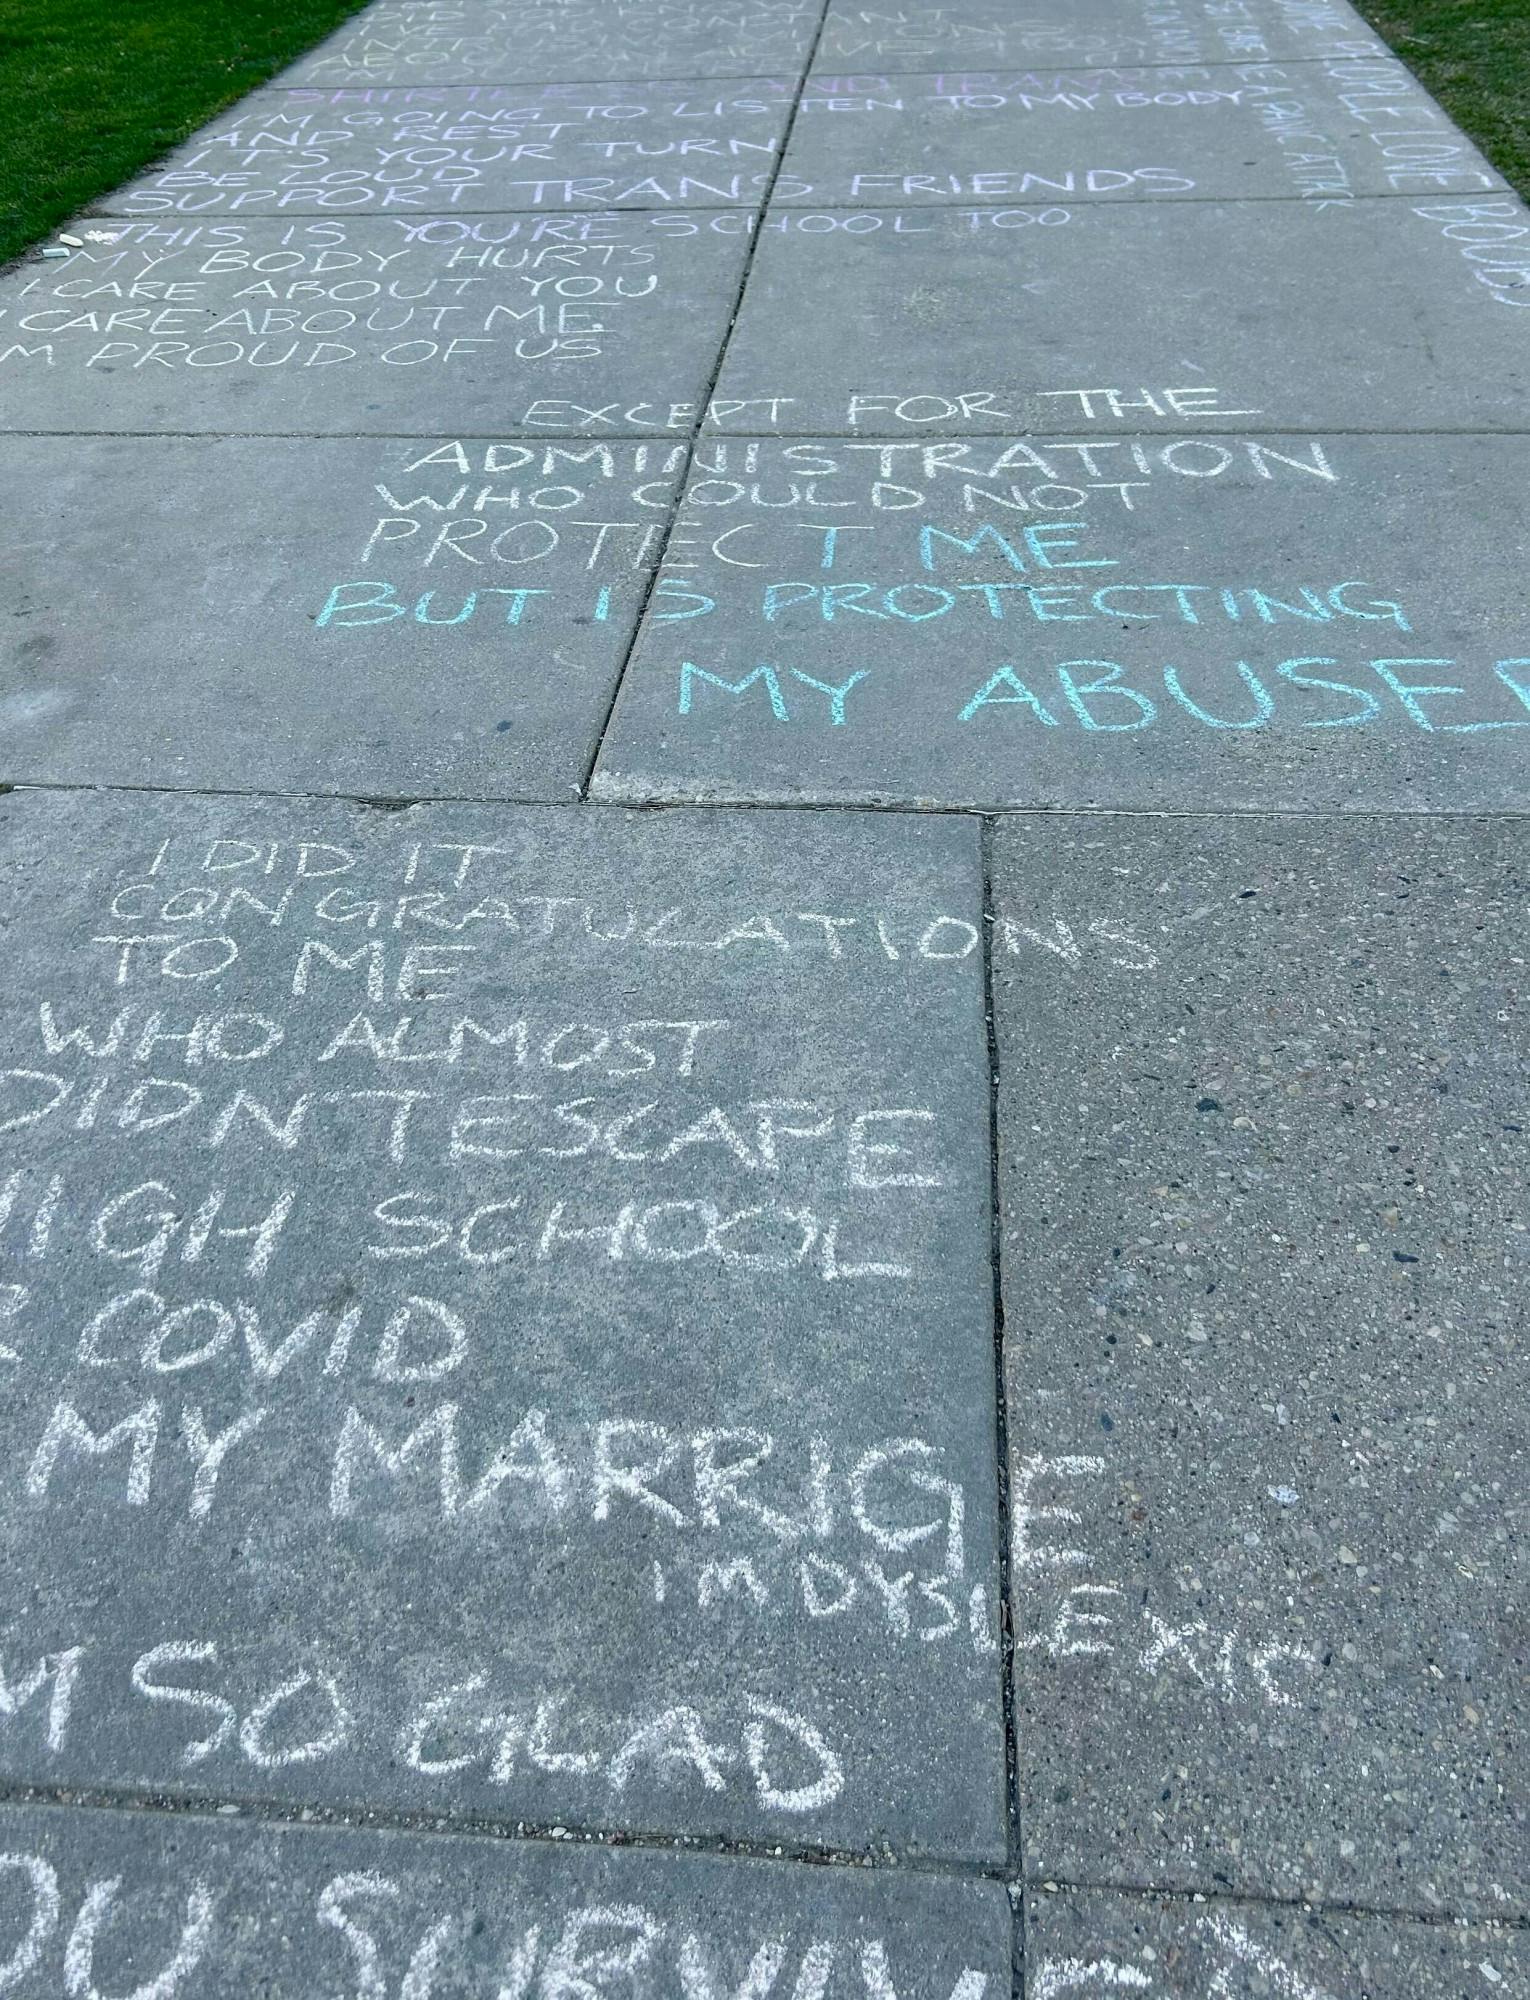 DID YOU KNOW
I'VE
SHIRTLESS AND TRANS
I'M GOING TO LISTEN TO MY BODY
AND REST
IT'S YOUR TURN
BE LOUD
SUPPORT TRANS FRIENDS
THIS IS YOU'RE SCHOOL TOO
MY BODY HURTS
I CARE ABOUT YOU
I CARE ABOUT ME
M PROUD OF US
A PANIC ATTAK
PEOPLE LOVE
EXCEPT FOR THE
ADMINISTRATION
WHO COULD NOT
PROTECT ME
BUT IS PROTECTING
MY ABUSER
I DID IT
CONGRATULATIONS
TO ME
WHO ALMOST
DIDNT ESCAPE
HIGH SCHOOL
& COVID
MY MARRIGE
IM DYSLEXIC
M SO GLAD
OU SURVIVED